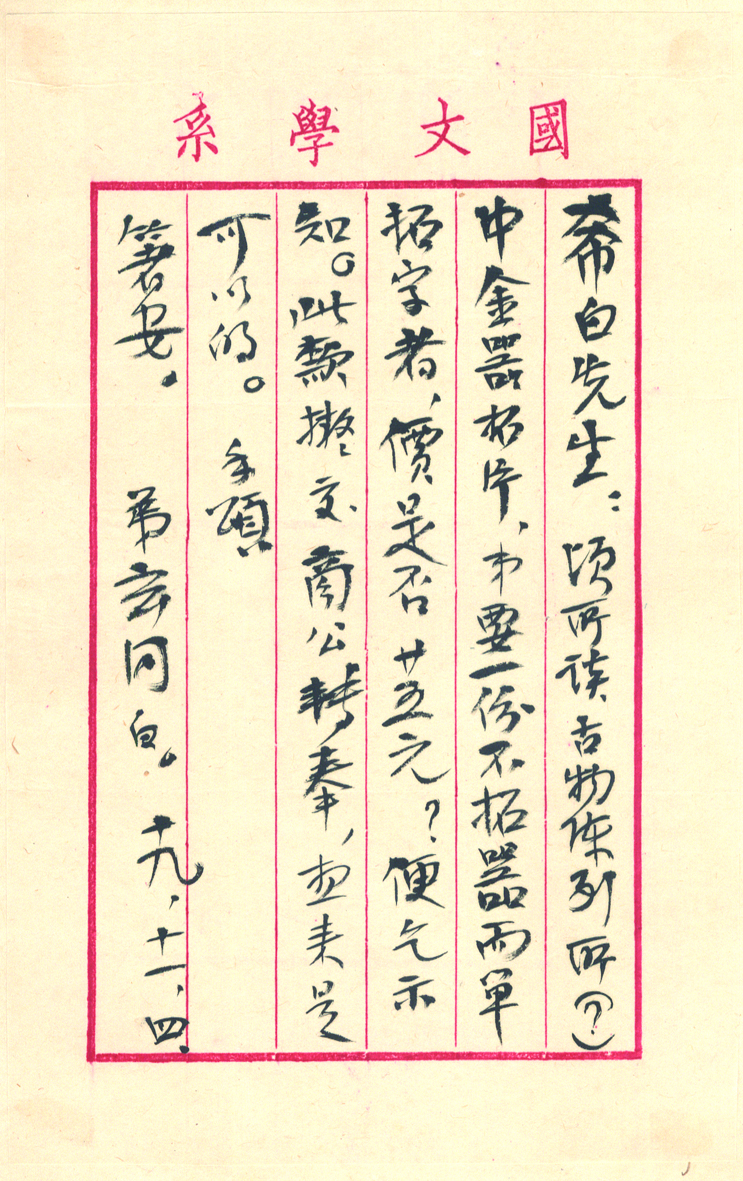 國文學系
希白先生：頃所談古物陳列所（？）
中金器拓片，弟要一份不拓器而單
拓字者，價是否廿五元？便乞示
知。此款擬交商公轉奉，想来是
可以的。 手頌
箸安。 弟玄同白。 十九，十一，四．